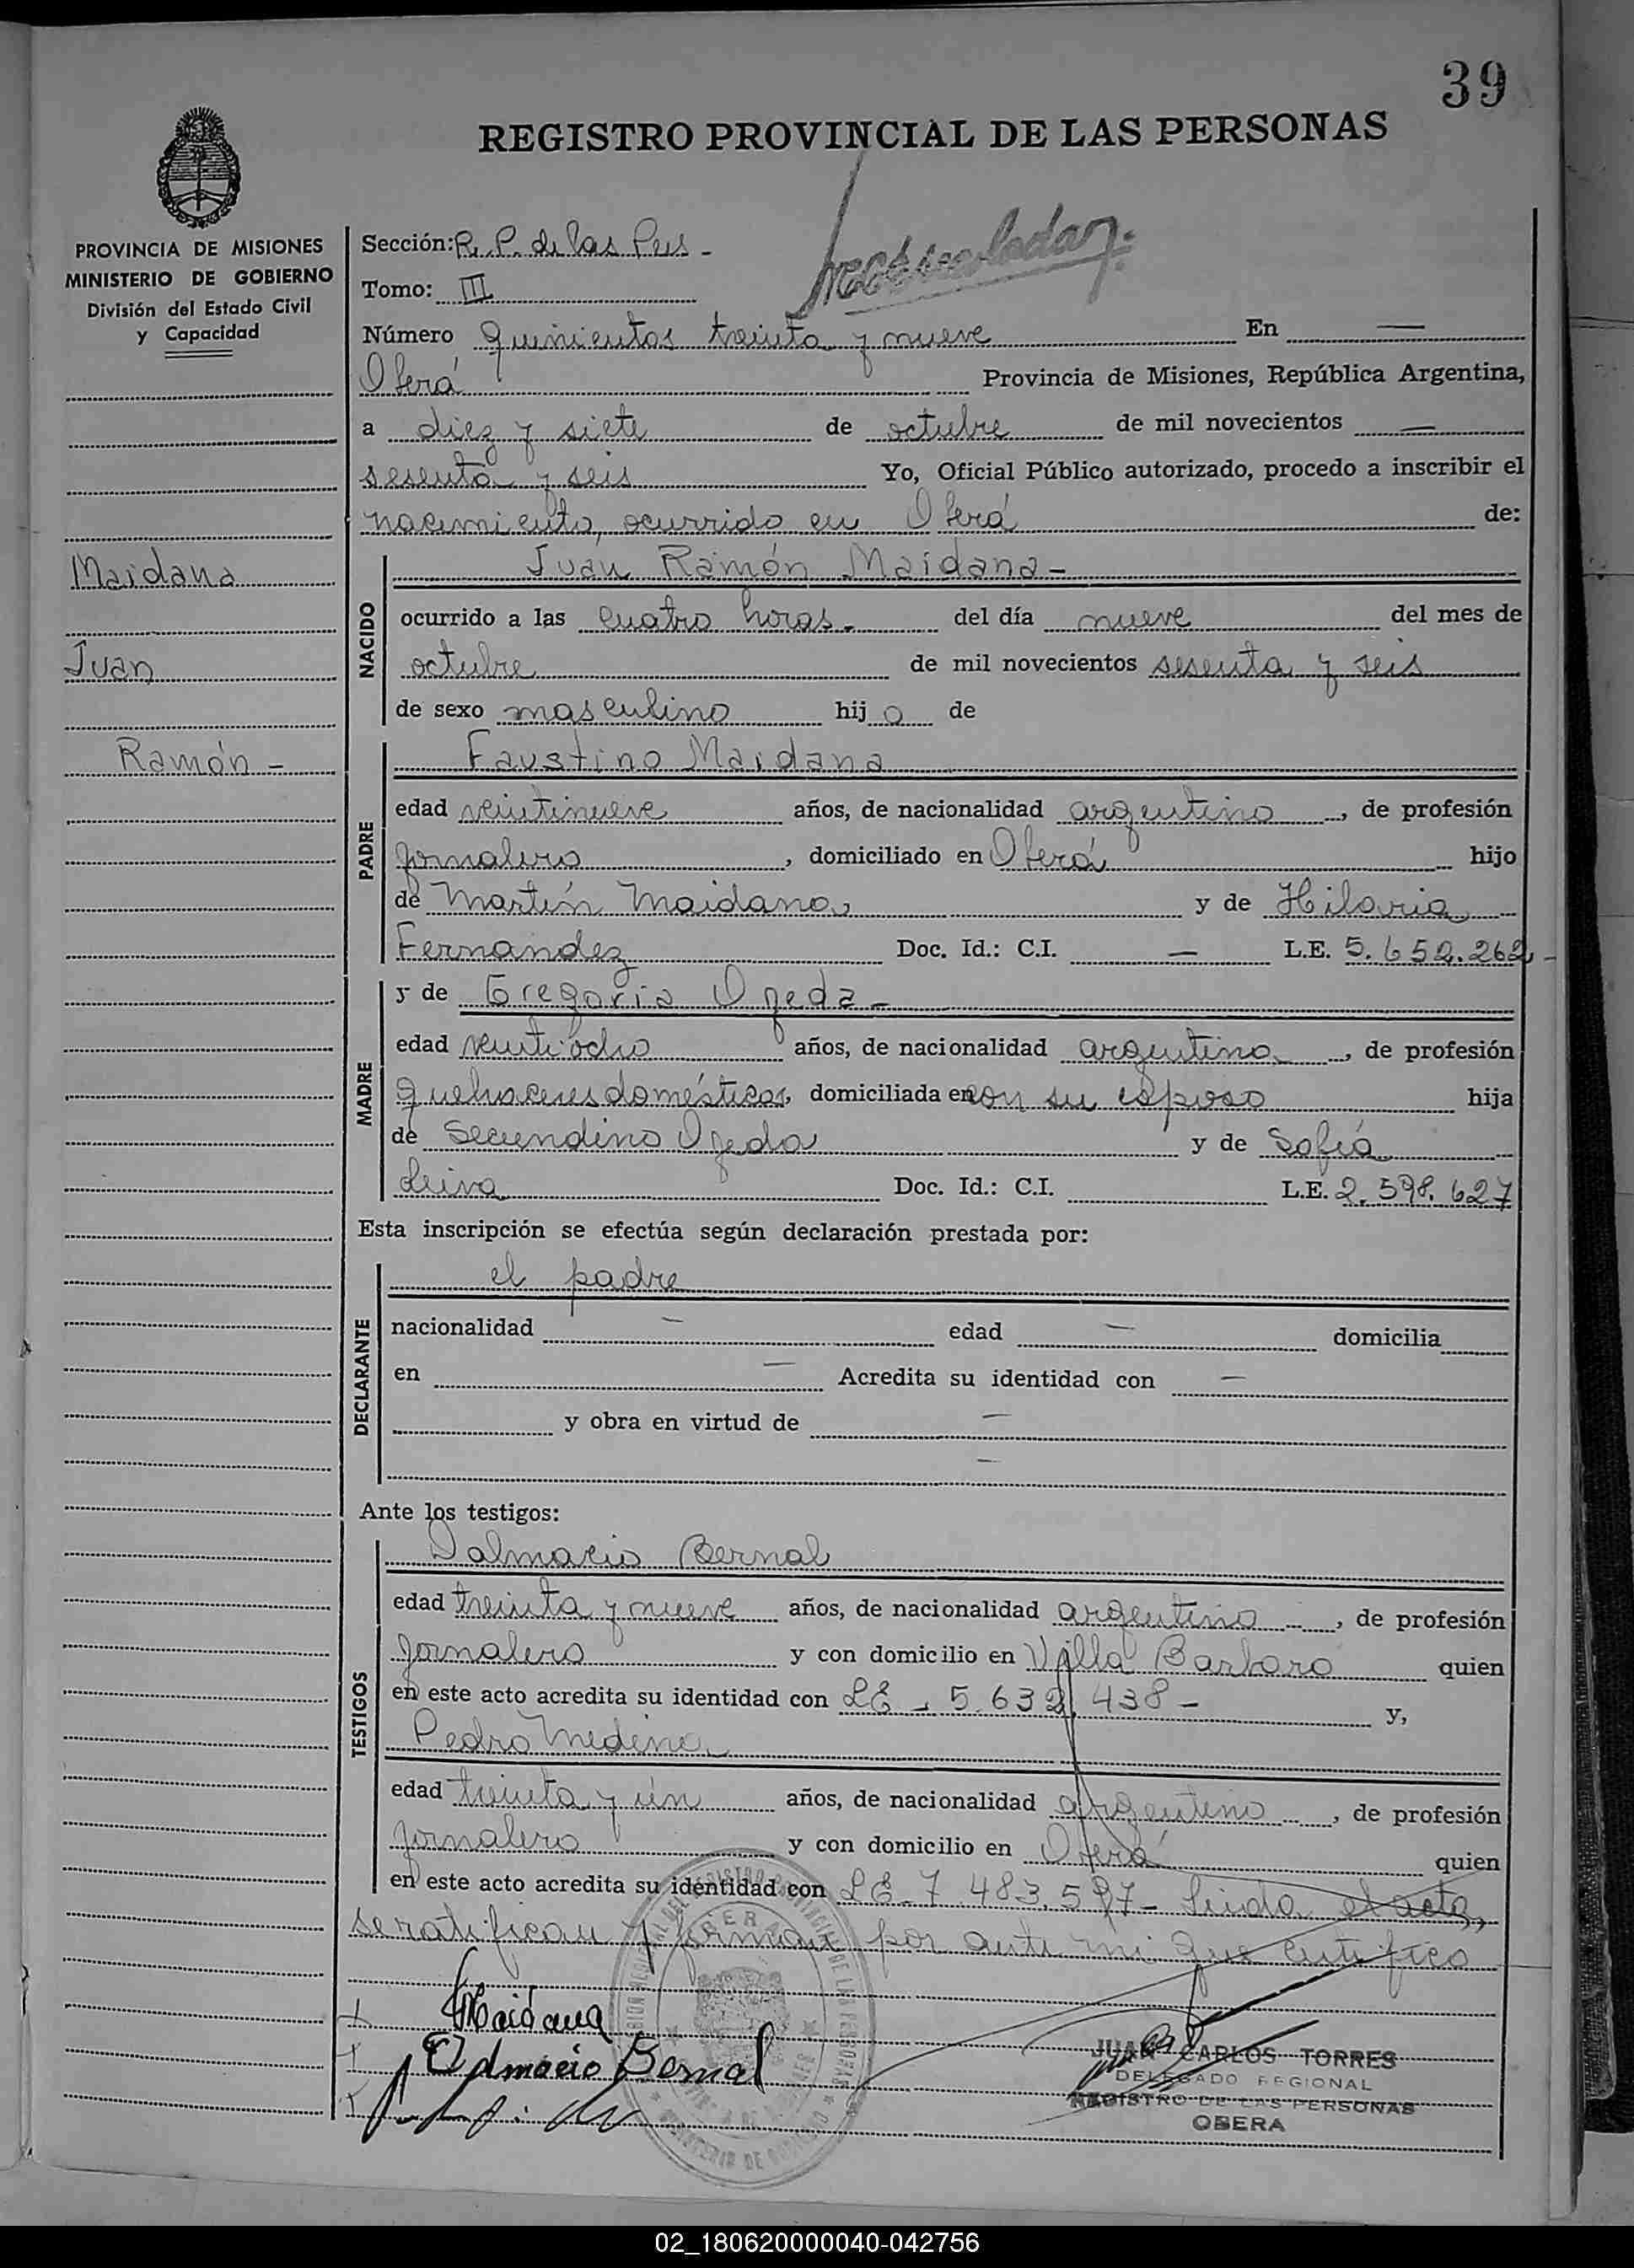 39
REGISTRO PROVINCIAL DE LAS PERSONAS
PROVINCIA DE MISIONES
MINISTERIO DE GOBIERNO
División del Estado Civil
y Capacidad
Maidana
Juan
Ramón -
Sección: R. P. de las Pers -
Tomo: III
Número quinientos treinta y nueve En —
Oberá Provincia de Misiones, República Argentina,
a diez y siete de octubre de mil novecientos —
sesenta y seis Yo, Oficial Público autorizado, procedo a inscribir el
nacimiento, ocurrido en Oberá de:
NACIDO
Juan Ramón Maidana -
ocurrido a las cuatro horas - del día nueve del mes de
octubre de mil novecientos sesenta y seis
de sexo masculino hij o de
PADRE
Faustino Maidana
edad veintinueve años, de nacionalidad argentino, de profesión
jornalero, domiciliado en Oberá hijo
de Martín Maidana y de Hilaria
Fernandez Doc. Id.: C.I. — L.E. 5.652.262 -
MADRE
y de Gregoria Ojeda -
edad veintiocho años, de nacionalidad argentina, de profesión
quehaceres domésticos, domiciliada en con su esposo hija
de Secundino Ojeda y de Sofía
Leiva Doc. Id.: C.I. L.E. 2.598.627
Esta inscripción se efectúa según declaración prestada por:
DECLARANTE
el padre
nacionalidad — edad — domicilia
en — Acredita su identidad con —
y obra en virtud de —
—
Ante los testigos:
TESTIGOS
Dalmacio Bernal
edad treinta y nueve años, de nacionalidad argentino, de profesión
jornalero y con domicilio en Villa Barbaro quien
en este acto acredita su identidad con LE - 5.632.438 - y,
Pedro Medina
edad treinta y un años, de nacionalidad argentino, de profesión
jornalero y con domicilio en Oberá quien
en este acto acredita su identidad con LE - 7.483.597 - Leida el acta,
se ratifican y firman por ante mi que certifico
Maidana
Dalmacio Bernal
JUAN CARLOS TORRES
DELEGADO REGIONAL
REGISTRO DE LAS PERSONAS
OBERA
02_180620000040-042756